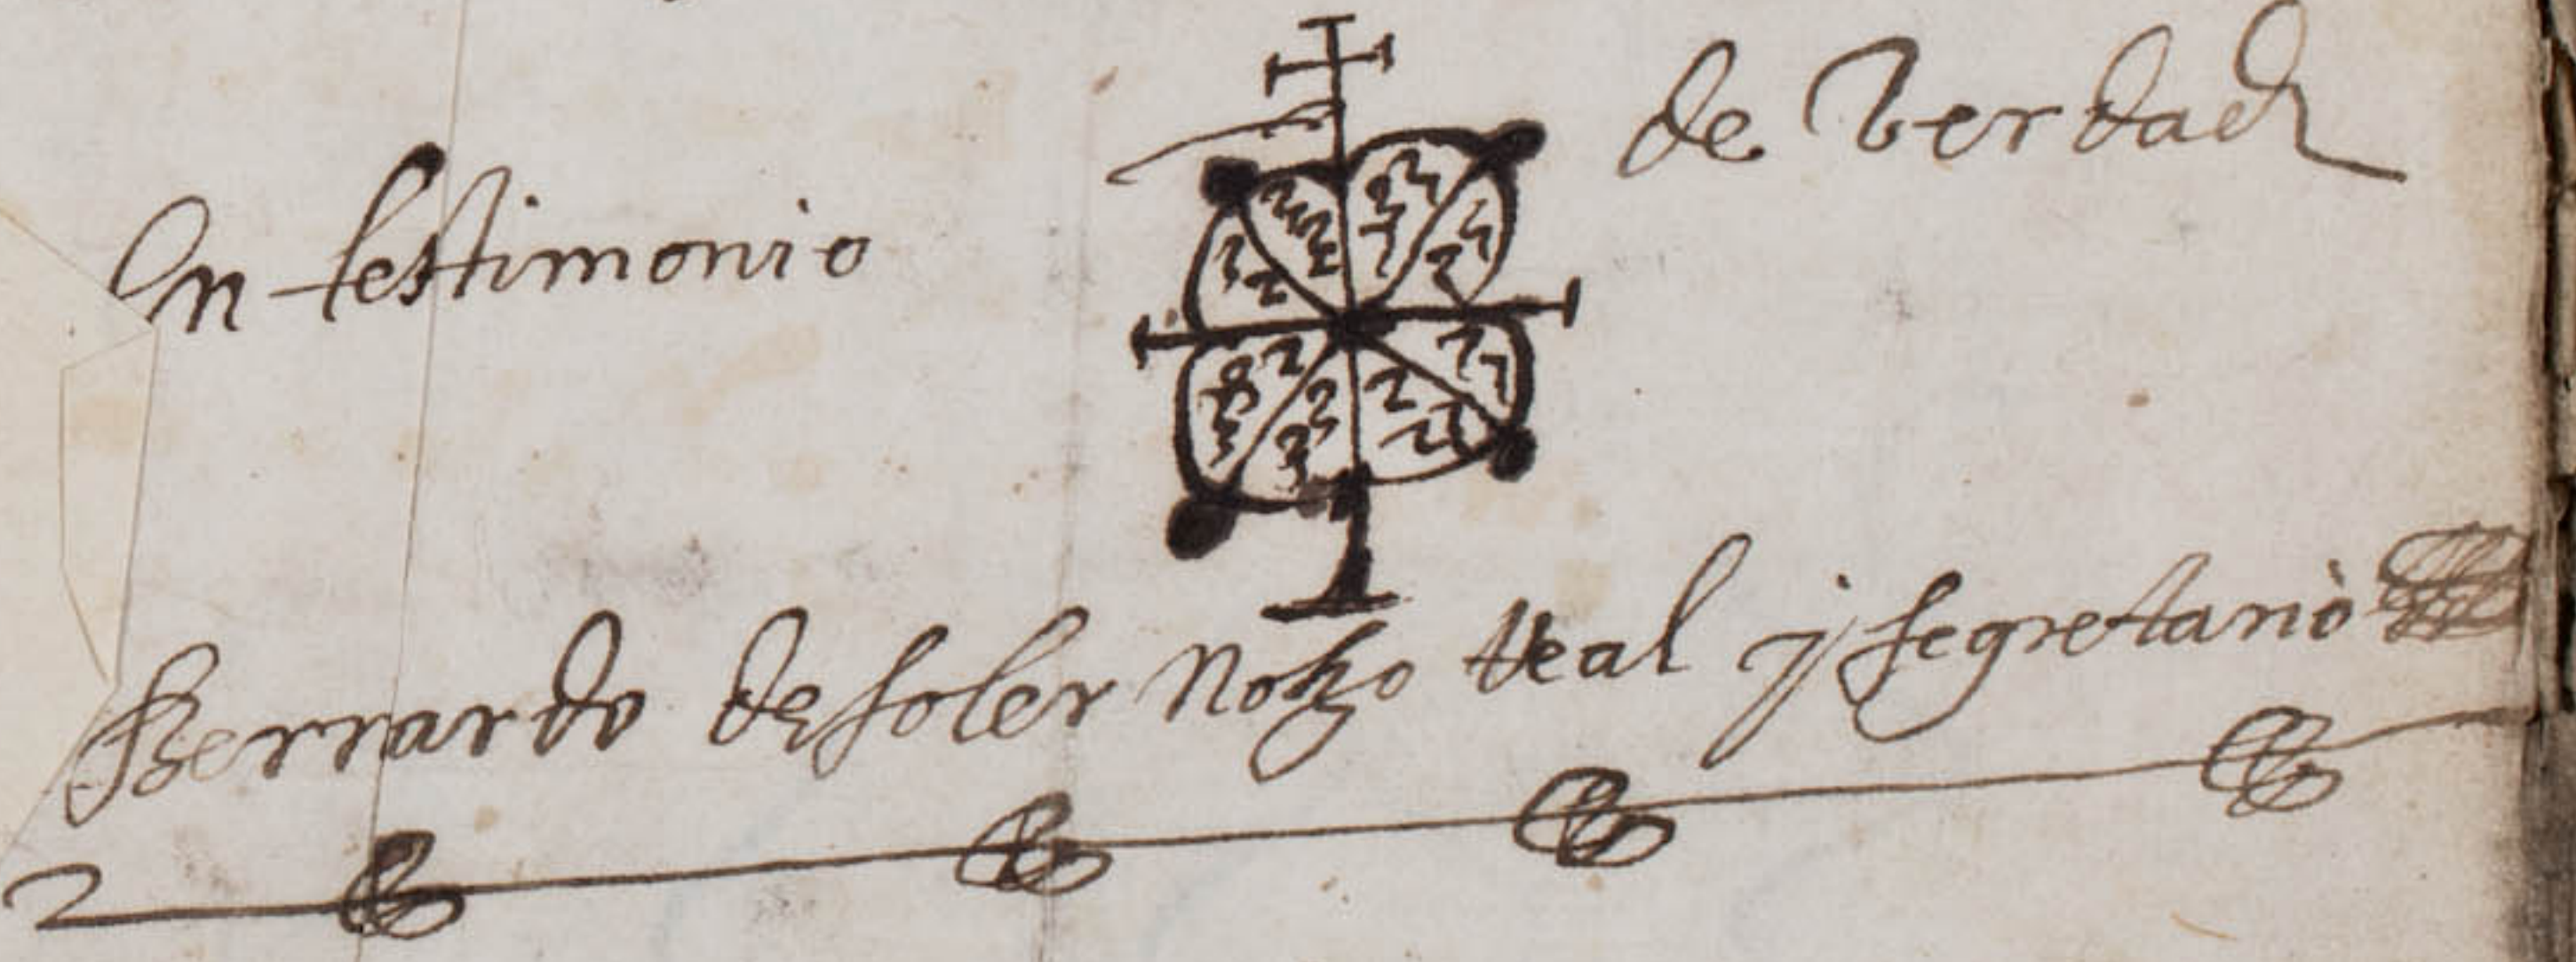 En testimonio de Verdad
Berrardo de Soler Notro Real y segretario